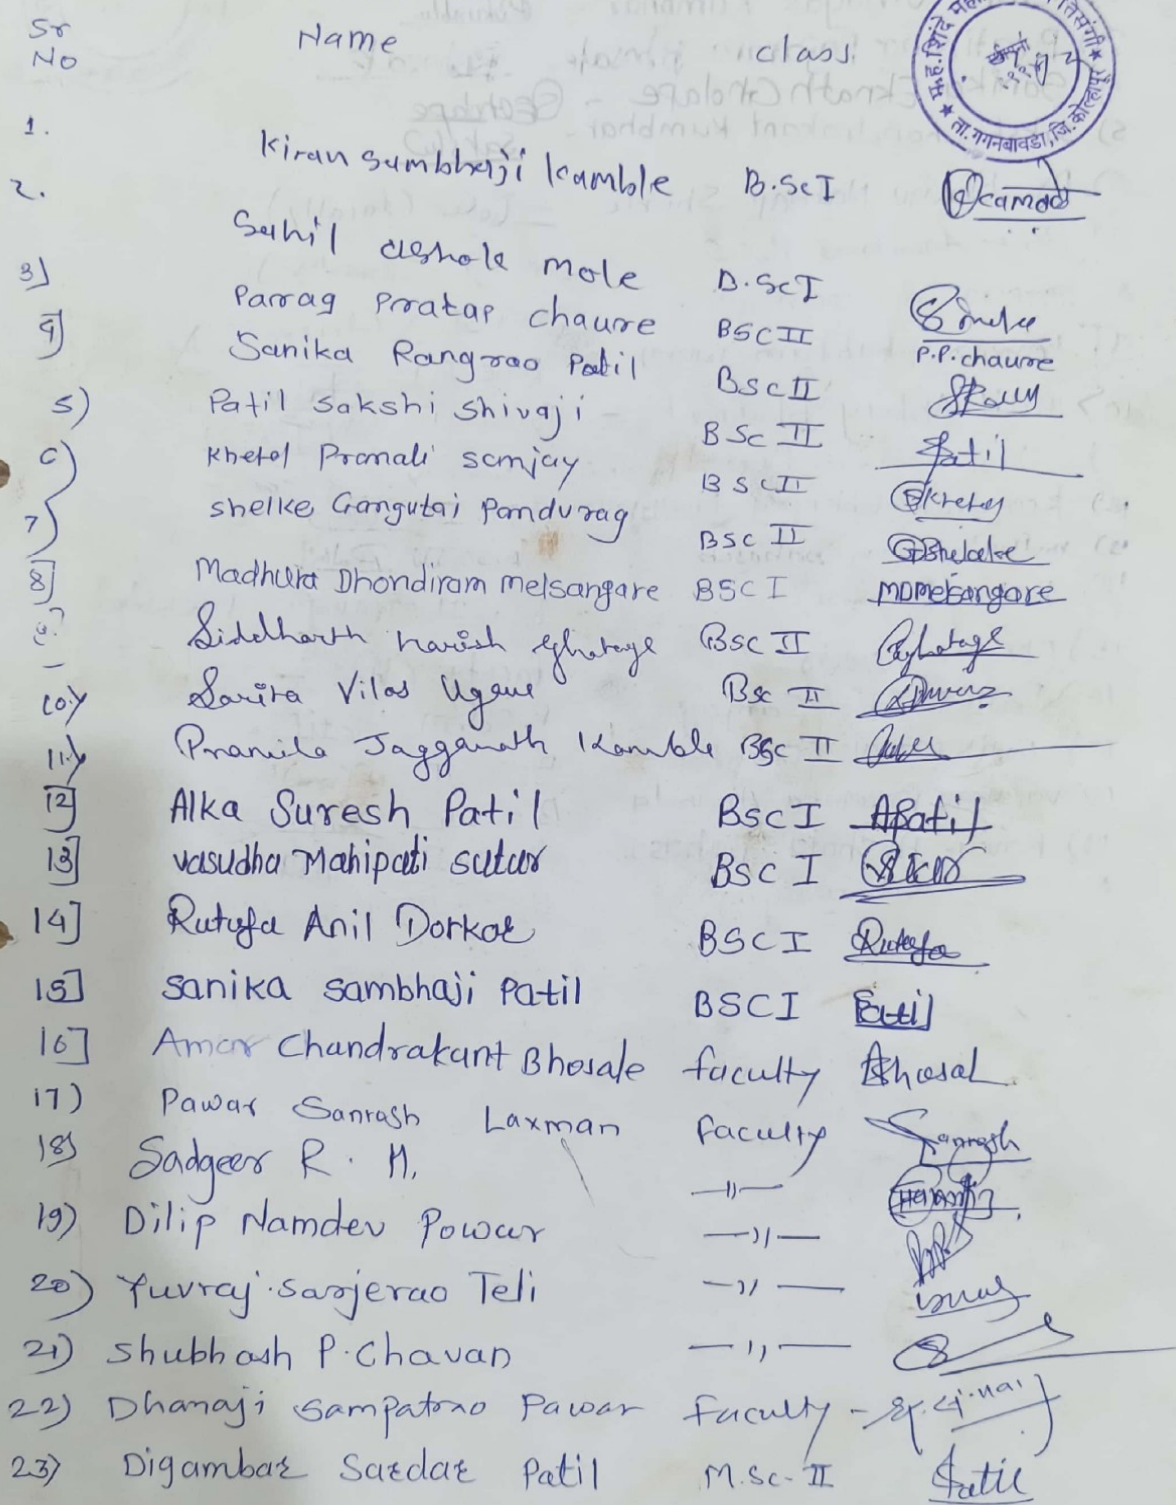 Sr No Name class
1. Kiran Sambhaji Kamble B.Sc I
2. Sahil Ashok Mole B.Sc I
3] Parag Pratap Chaure BSC II P.P. chaure
4] Sanika Rangrao Patil BSC II
5) Patil Sakshi Shivaji BSc II Patil
6) Khetal Pranali Sanjay BSC II
7) Shelke Gangutai Pandurag BSC II GPShelake
8] Madhura Dhondiram Melsangare BSC I MDMelsangare
Siddharth Harish Ghatage BSC II Ghatage
10.) Sarita Vilas Ugave BSc II
11.) Pramila Jagganath Kamble BSC II
12] Alka Suresh Patil BSC I APatil
13] Vasudha Mahipati Sutar BSC I
14] Rutuja Anil Dorkar BSC I Rutuja
15] Sanika Sambhaji Patil BSC I Patil
16] Amar Chandrakant Bhosale faculty Bhosale
17) Pawar Santosh Laxman Faculty Santosh
18) Sadgeer R. H. —11—
19) Dilip Namdev Powar —11—
20) Yuvraj Sarjerao Teli —11—
21) Shubhash P. Chavan —11—
22) Dhanaji Sampatrao Pawar faculty -
23) Digambar Sardar Patil M.Sc-II Patil
फ.ह.शिंदे ★ ता.गगनबावडा, जि.कोल्हापूर ★